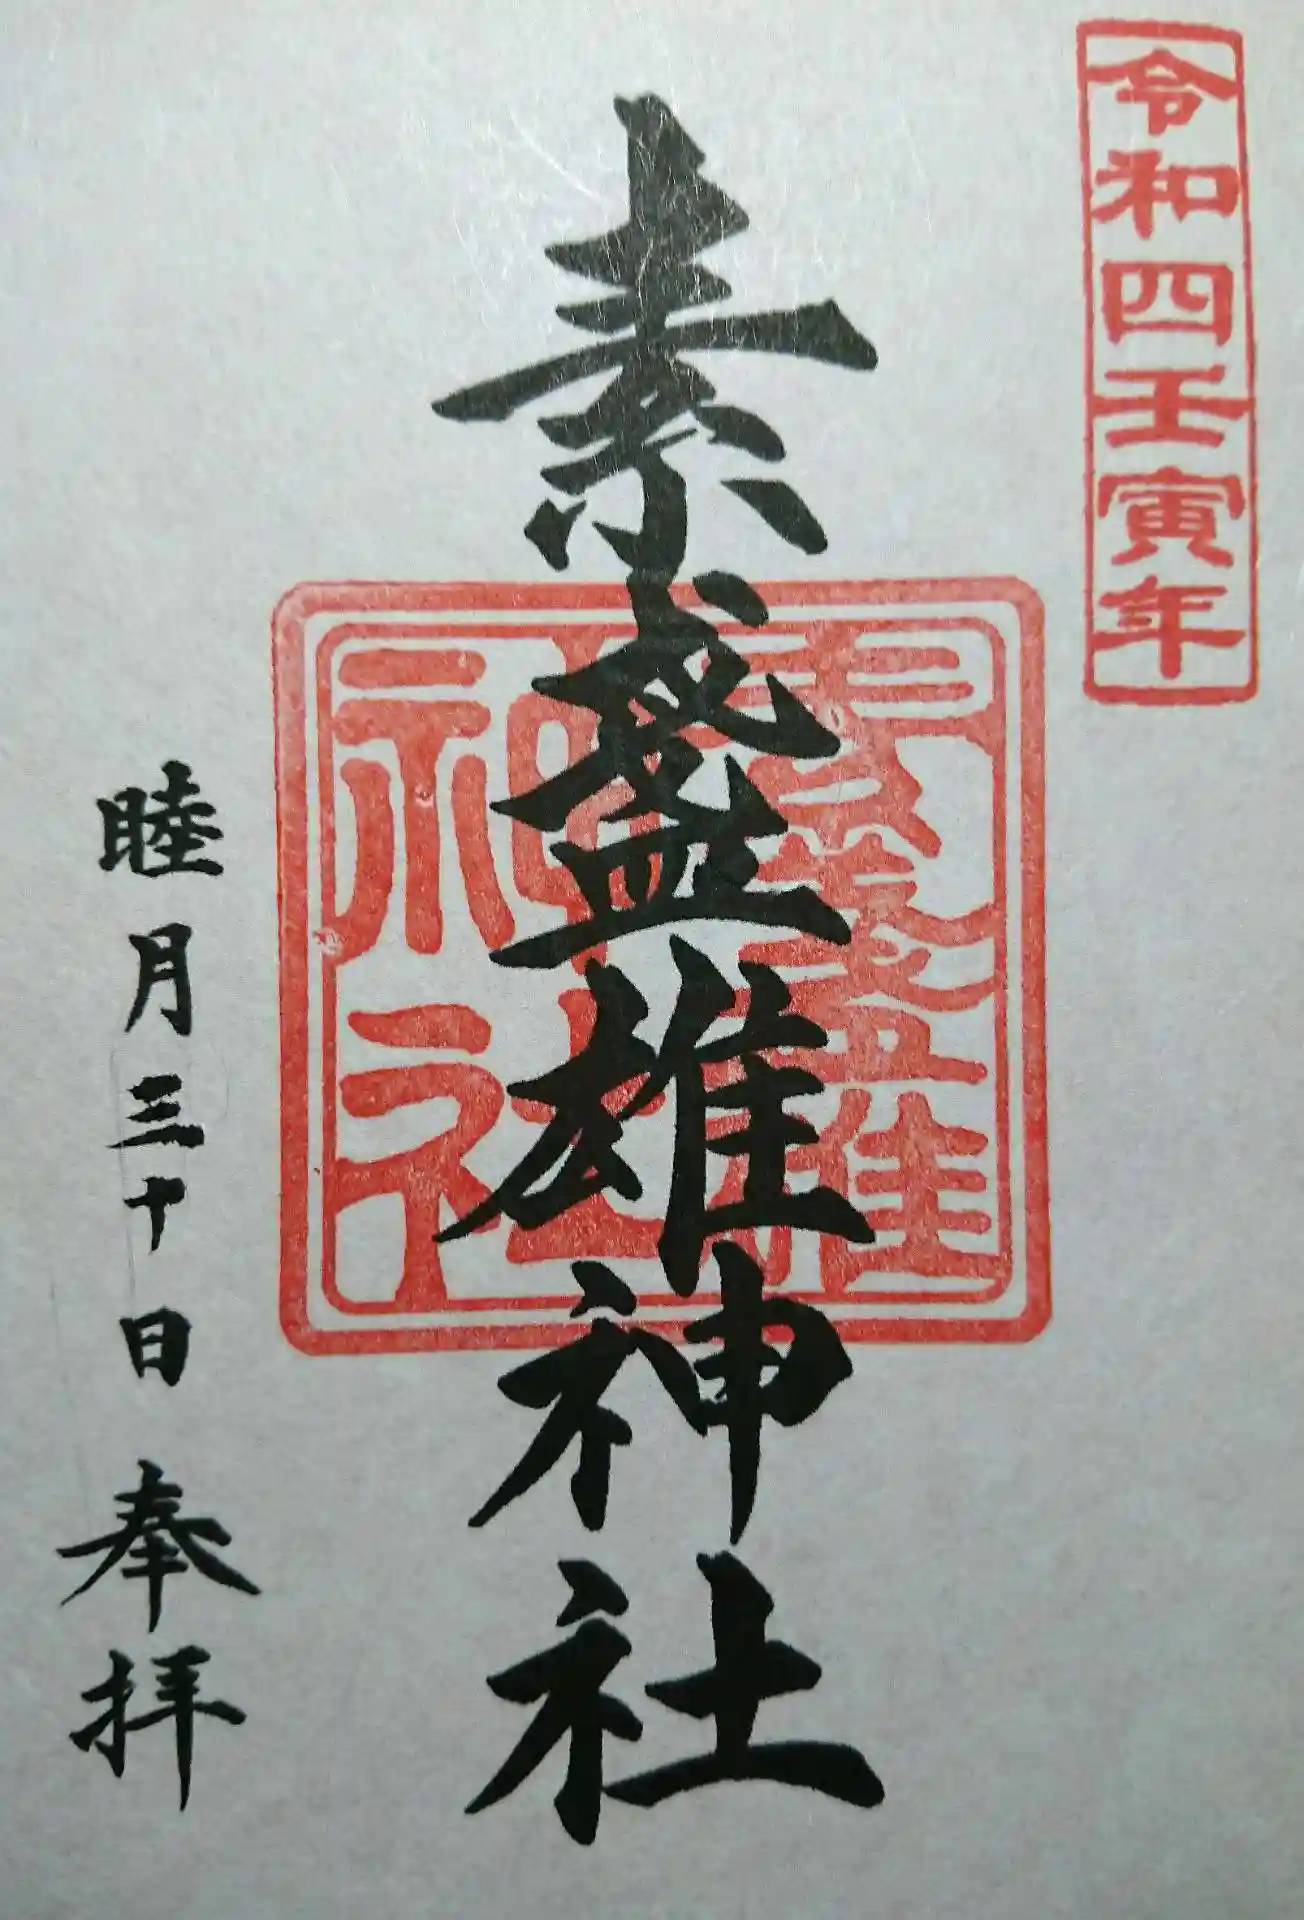 令和四壬寅年
素盞雄神社
素盞雄
神社
睦月三十日奉拝